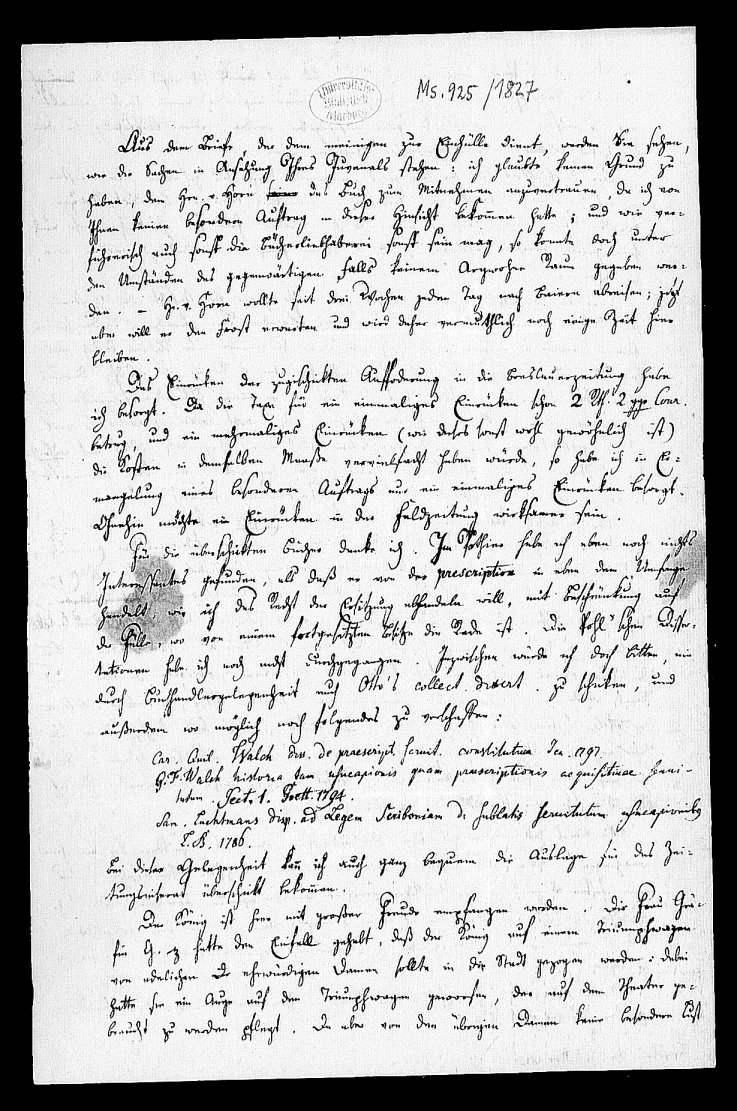 Ms. 925/1827
Universitäts
Bibliothek
Marburg
Aus dem Briefe, der dem meinigen zur Einhülle dient, werden Sie sehen,
wie die Sachen in Ansehung Ihres Juvenals stehen: ich glaubte keinen Grund zu
haben, dem Hrn v. Horn das Buch zum Mitnehmen anzuvertrauen, da ich von
Ihnen keinen besondern Auftrag in dieser Hinsicht bekommen hatte; und wie ver-
führerisch auch sonst die Bücherliebhaberei sonst sein mag, so konnte doch unter
den Umständen des gegenwärtigen Falls keinem Argwohn Raum gegeben wer-
den. – Hr. v. Horn wollte seit drei Wochen jeden Tag nach Baiern abreisen; jetzt
aber will er den Frost erwarten und wird daher vermuthlich noch einige Zeit hier
bleiben.
Das Einrüken der zugeschikten Aufforderung in die Breslauerzeitung habe
ich besorgt. Da die Taxe für ein einmaliges Einrüken schon 2 Rth. 2 ggr Cour.
betrug, und ein mehrmaliges Einrüken (wie dieses sonst wohl gewöhnlich ist)
die Kosten in demselben Maaße vervielfacht haben würde, so habe ich in Er-
mangelung eines besondern Auftrags nur ein einmaliges Einrüken besorgt.
Ohnehin möchte ein Einrüken in der Feldzeitung wirksamer sein.
Für die überschikten Bücher danke ich. Im Pothier habe ich eben noch nichts
Interessantes gefunden, als daß er von der prescription in eben dem Umfange
handelt, wie ich das Recht der Ersitzung abhandeln will, mit Beschränkung auf
die Fälle, wo von einem fortgesetzten Besitze die Rede ist. Die Pohl'schen Disser-
tationen habe ich noch nicht durchgegangen. Inzwischen würde ich doch bitten, mir
durch Buchhändlergelegenheit auch Otto's collect. dissert. zu schiken, und
außerdem wo möglich noch folgendes zu verschaffen:
Car. Walch diss. de praescript. servit. constitutiva Jen. 1797.
G. F. Walch historia tam usucapionis quam praescriptionis acquisitivae servi-
tutum. Sect. 1. Goett. 1794.
San. Luchtmans disp. ad Legem Scriboniam de sublatis servitutum usucapionibus
L. B. 1786.
Bei dieser Gelegenheit kann ich auch ganz bequem die Auslage für das Zei-
tungsinserat überschikt bekommen.
Der König ist hier mit großer Freude empfangen worden. Die Frau Grä-
fin G. hatte den Einfall gehabt, daß der König auf einem Triumphwagen
von adelichen ehrwürdigen Damen sollte in die Stadt gezogen werden: dabei
hatte sie ein Auge auf den Triumphwagen geworfen, der auf dem Theater ge-
braucht zu werden pflegt. Da aber von den übrigen Damen keine besondere Lust